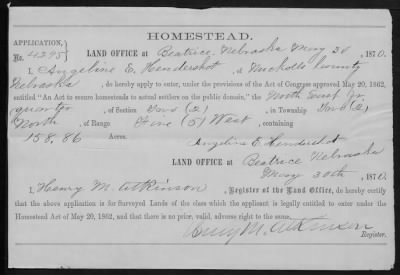 HOMESTEAD.
APPLICATION,
No. 4295
LAND OFFICE at Beatrice, Nebraska May 30, 1870
I, Angeline E. Hendershot, of Nuckolls County
Nebraska, do hereby apply to enter, under the provisions of the Act of Congress approved May 20, 1862,
entitled "An Act to secure homesteads to actual settlers on the public domain," the North East
quarter of Section Two (2), in Township Two (2)
North of Range Five (5) West, containing
158.86 Acres.
Angeline E. Hendershot
LAND OFFICE at Beatrice Nebraska
May 30th, 1870
I, Henry M. Atkinson, Register of the Land Office, do hereby certify
that the above application is for Surveyed Lands of the class which the applicant is legally entitled to enter under the
Homestead Act of May 20, 1862, and that there is no prior, valid, adverse right to the same.
Henry M. Atkinson
Register.